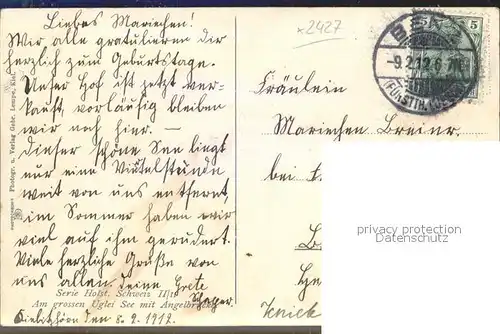 Liebes Mariechen!
Wir alle gratulieren dir
herzlich zum Geburtstage.
Unser Hof ist jetzt ver-
kauft, vorläufig bleiben
wir noch hier. —
Dieser schöne See liegt
nur eine Viertelstunde
weit von uns entfernt,
im Sommer haben wir
viel auf ihm gerudert.
Viele herzliche Grüße von
uns allen, deine Grete
Serie Holst. Schweiz II/11
Am grossen Uglei See mit Angelbrücke
den 8.2.1912.
Photogr. u. Verlag Gebr. Lempe, Kiel
x2427
5 5
-9.2.12.6-7N.
(FÜRSTH. LÜBECK)
Fräulein
Mariechen
bei
privacy protection
Datenschutz
Knick